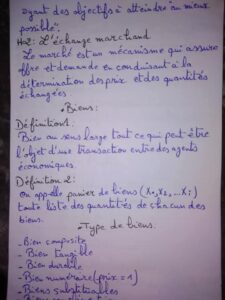 ayant des objectifs à atteindre "au mieux
possible".
H2: L'échange marchand
Le marché est un mécanisme qui assure
offre et demande en conduisant à la
détermination des prix et des quantités
échangées.
• Biens:
Définition 1:
Bien au sens large tout ce qui peut être
l'objet d'une transaction entre des agents
économiques.
Définition 2:
On appelle panier de biens (X1, X2, ... Xi)
toute liste des quantités de chacun des
biens.
• Type de biens:
- Bien composite
- Bien tangible
- Bien durable
- Bien numéraire (prix = 1)
- Biens substituables